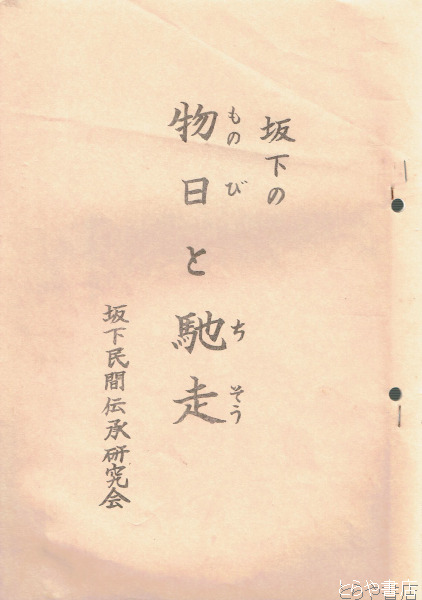 坂下の
物日と馳走
ものび
ちそう
坂下民間伝承研究会
とらや書店